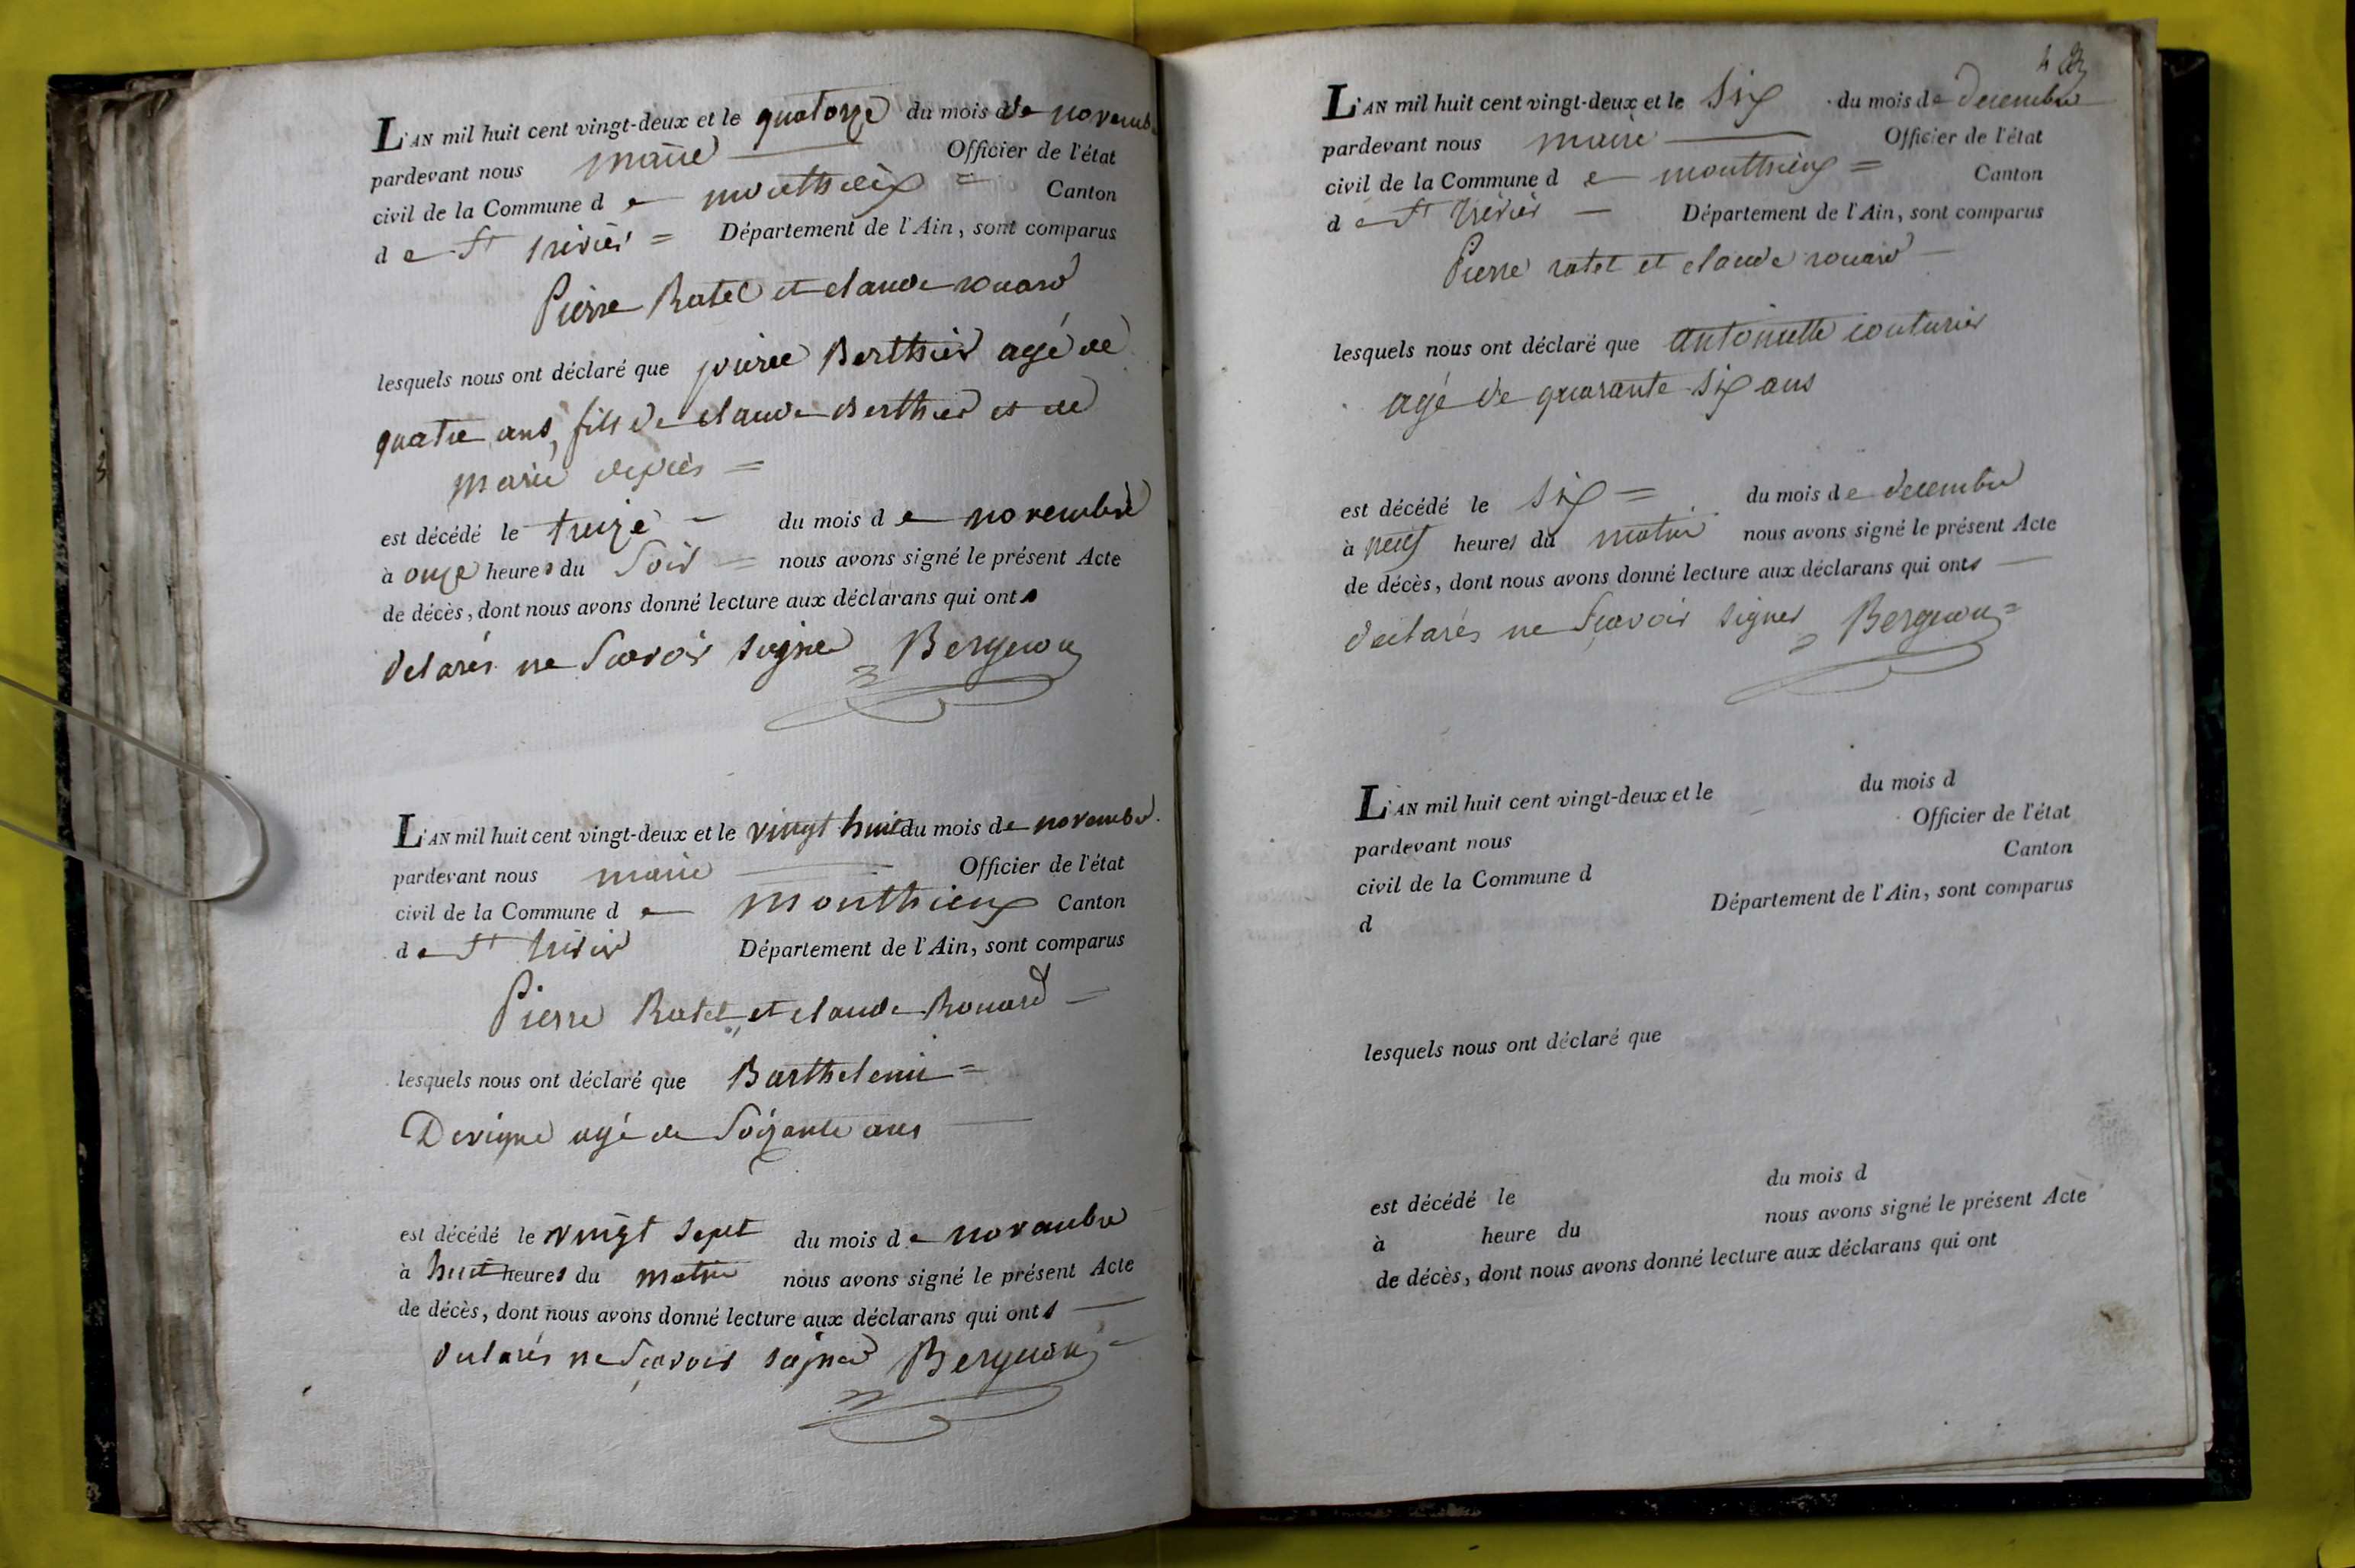 L'AN mil huit cent vingt-deux et le quatorze du mois de novemb
pardevant nous maire Officier de l'état
civil de la Commune de Canton
de St trivier = Département de l'Ain, sont comparus
Pierre Ratel et claude rouard
lesquels nous ont déclaré que pierre Berthier agé de
quatre ans, fils de claude Berthier et de
marie =
est décédé le treize du mois de novembre
à onze heures du Soir = nous avons signé le présent Acte
de décès, dont nous avons donné lecture aux déclarans qui onts
delarés ne Scavoir signer Bergeron
L'AN mil huit cent vingt-deux et le vingt huit du mois de novembre
pardevant nous maire Officier de l'état
civil de la Commune de monthieux Canton
de St trivier Département de l'Ain, sont comparus
Pierre Ratel et claude Rouard
lesquels nous ont déclaré que Barthelemi =
Devigne agé de Soixante ans
est décédé le vingt sept du mois de novembre
à huit heures du matin nous avons signé le présent Acte
de décès, dont nous avons donné lecture aux déclarans qui onts
declarés ne Scavoir signer Bergeron
L'AN mil huit cent vingt-deux et le Six du mois de decembre
pardevant nous maire Officier de l'état
civil de la Commune de monthieux = Canton
de St trivier Département de l'Ain, sont comparus
Pierre ratel et claude rouard
lesquels nous ont déclaré que antoinette couturier
agé de quarante Six ans
est décédé le Six = du mois de decembre
à neuf heures du matin nous avons signé le présent Acte
de décès, dont nous avons donné lecture aux déclarans qui onts
declarés ne Scavoir signer Bergeron =
L'AN mil huit cent vingt-deux et le du mois d
pardevant nous Officier de l'état
civil de la Commune d Canton
d Département de l'Ain, sont comparus
lesquels nous ont déclaré que
est décédé le du mois d
à heure du nous avons signé le présent Acte
de décès, dont nous avons donné lecture aux déclarans qui ont